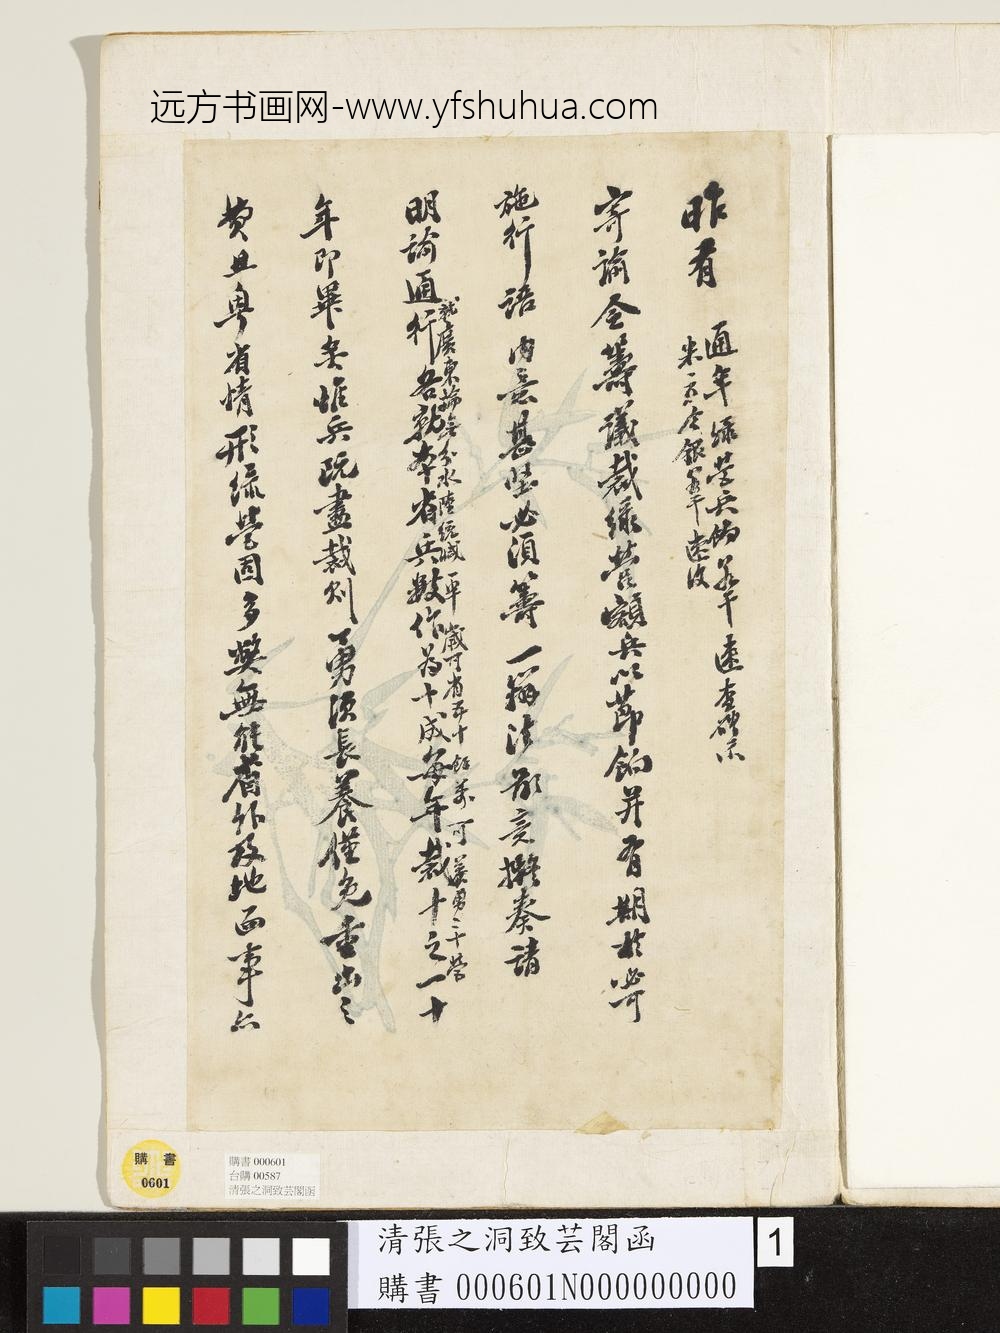 远方书画网-www.yfshuhua.com
昨有
通年綠營兵餉若干速查確示
米
寄諭令籌議裁綠營額兵以節餉并有期於必可
施行語內意甚堅必須籌一辦法鄙意擬奏請
明諭通行各就本省兵數作為十成每年裁十之一十
就廣東論無分水陸統減一半歲可省五十餘萬可養勇二十營
年即畢矣惟兵既盡裁則勇須長養僅免重出之
費且粵省情形綠營固多弊無能省外及地面事亦
購書
0601
購書 000601
台購 00587
清張之洞致芸閣函
清張之洞致芸閣函
購書 000601N000000000
1